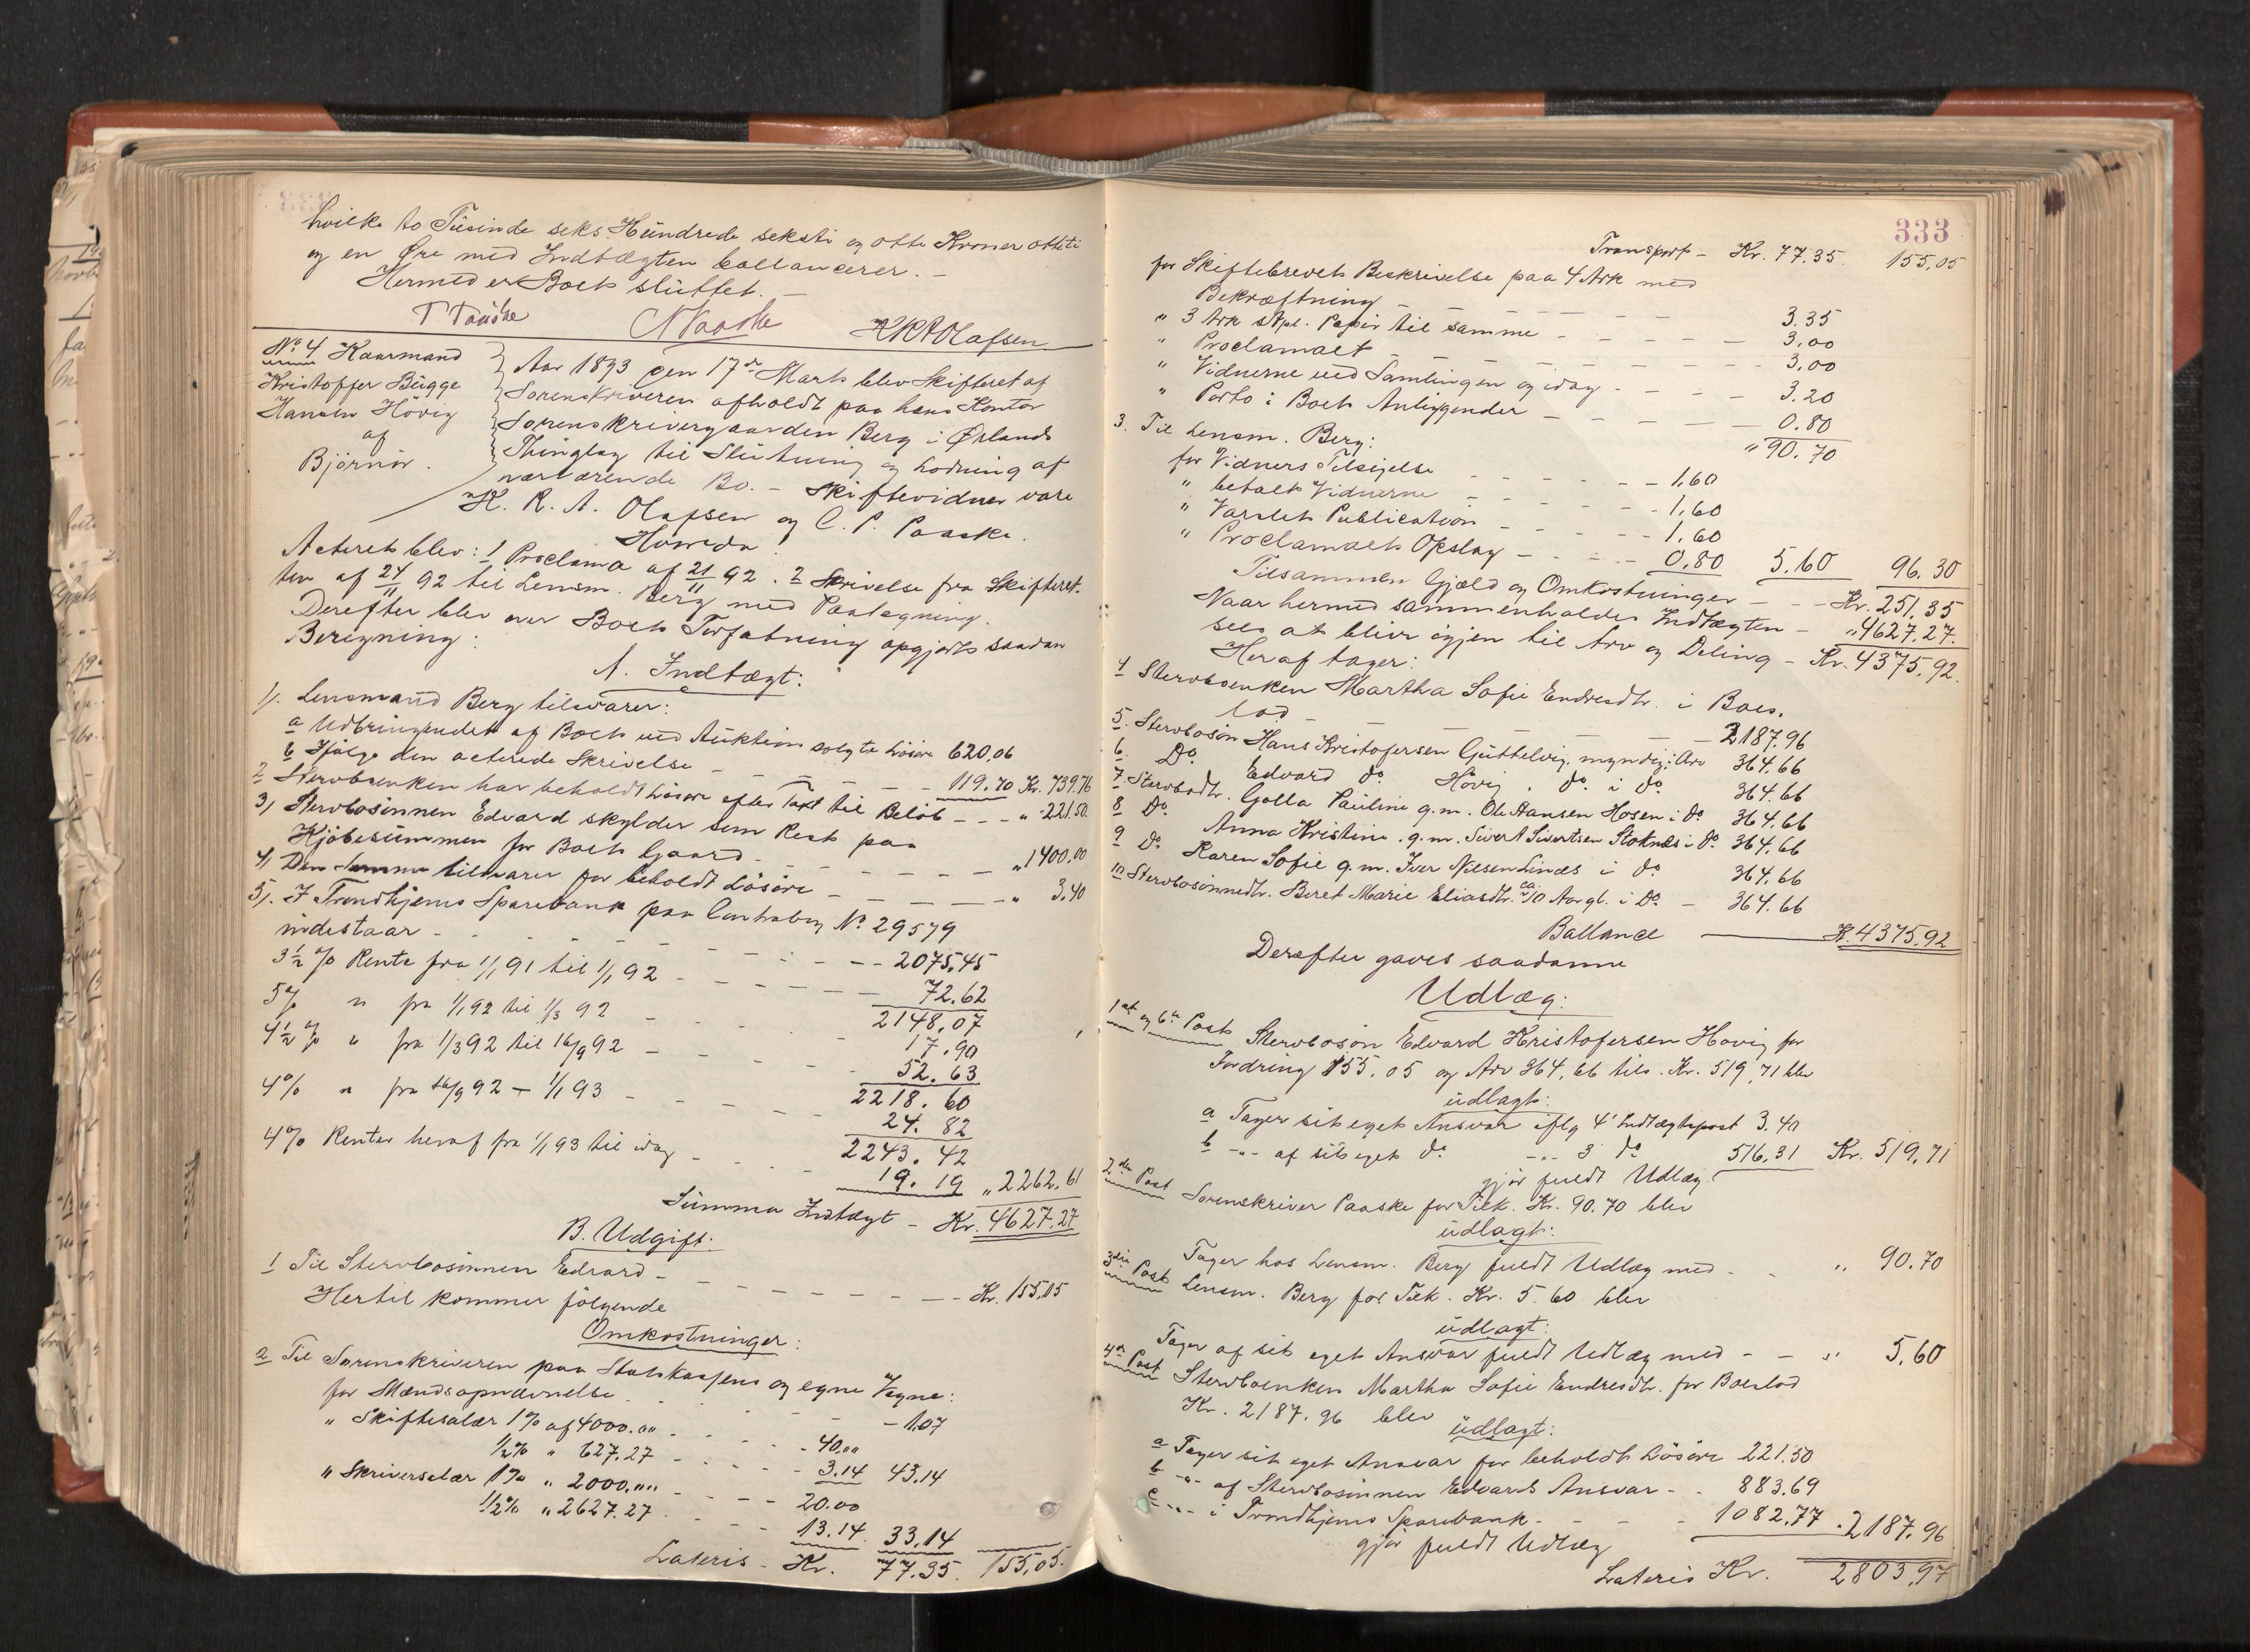 hvilke to Tusinde seks Hundrede seksti og otte Kroner otteti
og en Øre med Indtægten ballancerer. -
Hermed er Boets sluttet. -
T Paaske NPaaske HRAOlafsen
No. 4 Kaarmand
Kristoffer Bugge
Hansen Hövig
af
Björnör.
Aar 1893 den 17de Marts blev Skifteret af
Sorenskriveren afholdt paa hans Kontor
Sorenskrivergaarden Berg i Ørlands
Thinglag til Slutning og Lodning af
nærværende Bo. - Skiftevidner vare
H. R. A. Olafsen og C. P. Paaske.
Hvorda
Acteret blev: 1 Proclama af 21/11 92. 2 Skrivelse fra Skifteret-
ten af 24/11 92 til Lensm. Berg med Paategning.
Derefter blev over Boets Forfatning opgjordt saadan
Beregning:
A. Indtægt:
1). Lensmand Berg tilsvarer:
a Udbringendet af Boets ved Auktion solgte Lösöre 620,06
b Ifölge den acterede Skrivelse - - - 119.70 Kr. 739.76
2 Stervboenken har beholdt Lösöre efter Taxt til Beløb - - - " 221.50.
3) Stervbosönnen Edvard skylder som Rest paa
Kjöbesummen for Boets Gaard - - - - - " 1400.00
4) Den Samme tilsvarer for beholdt Lösöre - - - - " 3,40
5). I Trondhjems Sparebank paa Contrabog No. 29579
indestaar - - - - - - 2075,45
3 1/2 % Rente fra 1/1 91 til 1/1 92 - - - - 72.62
2148,07
5% " fra 1/1 92 til 1/3 92 - - - 17.90
4 1/2 % " fra 1/3 92 til 16/9 92 - - - 52.63
2218.60
4% " fra 16/9 92 - 1/1 93 - - - - 24.82
2243.42
4% Renter heraf fra 1/1 93 til idag - - - 19.19 " 2262,61
Summa Indtægt - Kr. 4627.27
B. Udgift:
1 Til Stervbosönnen Edvard - - - - - - - Kr. 155,05
Hertil kommer fölgende
Omkostninger:
2 Til Sorenskriveren paa Statskassens og egne Vegne:
for Mændsopnævnelse - - - - 1.07
" Skiftesalær 1% af 4000.00 - - - 40.00
1/2% " 627.27 - - - 3.14 43.14
" Skriversalær 1% " 2000.00 - - - 20.00
1/2% " 2627.27 - - - 13.14 33,14
Lateris - Kr. 77.35. 155,05.
333
Transport - Kr. 77.35. 155,05
for Skiftebrevets Beskrivelse paa 4 Ark med
Bekræftning - - - - - 3.35
" 3 Ark stpl. Papir til samme - - - - 3,00
" Proclamaet - - - - - 3,00
" Vidnerne ved Samlingen og idag - - - 3.20
" Porto i Boets Anliggender - - - - 0.80
" 90.70
3. Til Lensm. Berg:
for Vidners Tilsigelse - - - - 1,60
" betalt Vidnerne - - - - 1,60
" Varslets Publication - - - 1,60
" Proclamaets Opslag - - - - 0,80 5.60 96.30
Tilsammen Gjæld og Omkostninger - - - Kr. 251,35
Naar hermed sammenholdes Indtægten - " 4627.27.
sees at blive igjen til Arv og Deling - Kr. 4375,92.
Heraf tager:
4 Stervboenken Martha Sofie Endresdtr. i Boes-
lod - - - - - 2187.96
5. Stervbosön Hans Kristofersen Guttelvig, myndig i Arv 364.66
6 Do. Edvard do. Hövig, do. i do. 364.66
7 Stervbodtr. Golla Pauline g.m. Ole Hansen Hosen i do. 364,66
8 Do. Anna Kristine g.m. Sivert Sivertsen Stoknes i do. 364,66
9 do. Karen Sofie g.m. Iver Nilsen Lines i do 364,66
10 Stervbosönnedtr. Beret Marie Eliasdtr. ca. 10 Aar gl. i do. - 364.66
Ballance - K. 4375.92
Derefter gaves saadanne
Udlæg:
1ste og 6te Post Stervbosön Edvard Kristofersen Hovig for
Fordring 155.05 og Arv 364,66 tils. Kr. 519,71 blev
udlagt:
a Tager sit eget Ansvar iflg 4' Indtægtspost 3.40
b -"- af sit eget do. -"- 3 do. 516,31 Kr. 519,71
gjør fuldt Udlæg.
2den Post Sorenskriver Paaske for Tilk. Kr. 90.70 blev
udlagt:
Tager hos Lensm. Berg fuldt Udlæg med - - " 90.70
3die Post Lensm. Berg for Tilk. Kr. 5.60 blev
udlagt:
Tager af sit eget Ansvar fuldt Udlæg med - - " 5,60
4de Post Stervboenken Martha Sofie Endresdtr. for Boeslod
Kr. 2187.96 blev
udlagt:
a Tager sit eget Ansvar for beholdt Lösöre 221.50
b -"- af Stervbosönnen Edvards Ansvar - - 883.69
c -"- i Trondhjems Sparebank - - - 1082.77 . 2187.96
gjør fuldt Udlæg
Lateris Kr. 2803,97